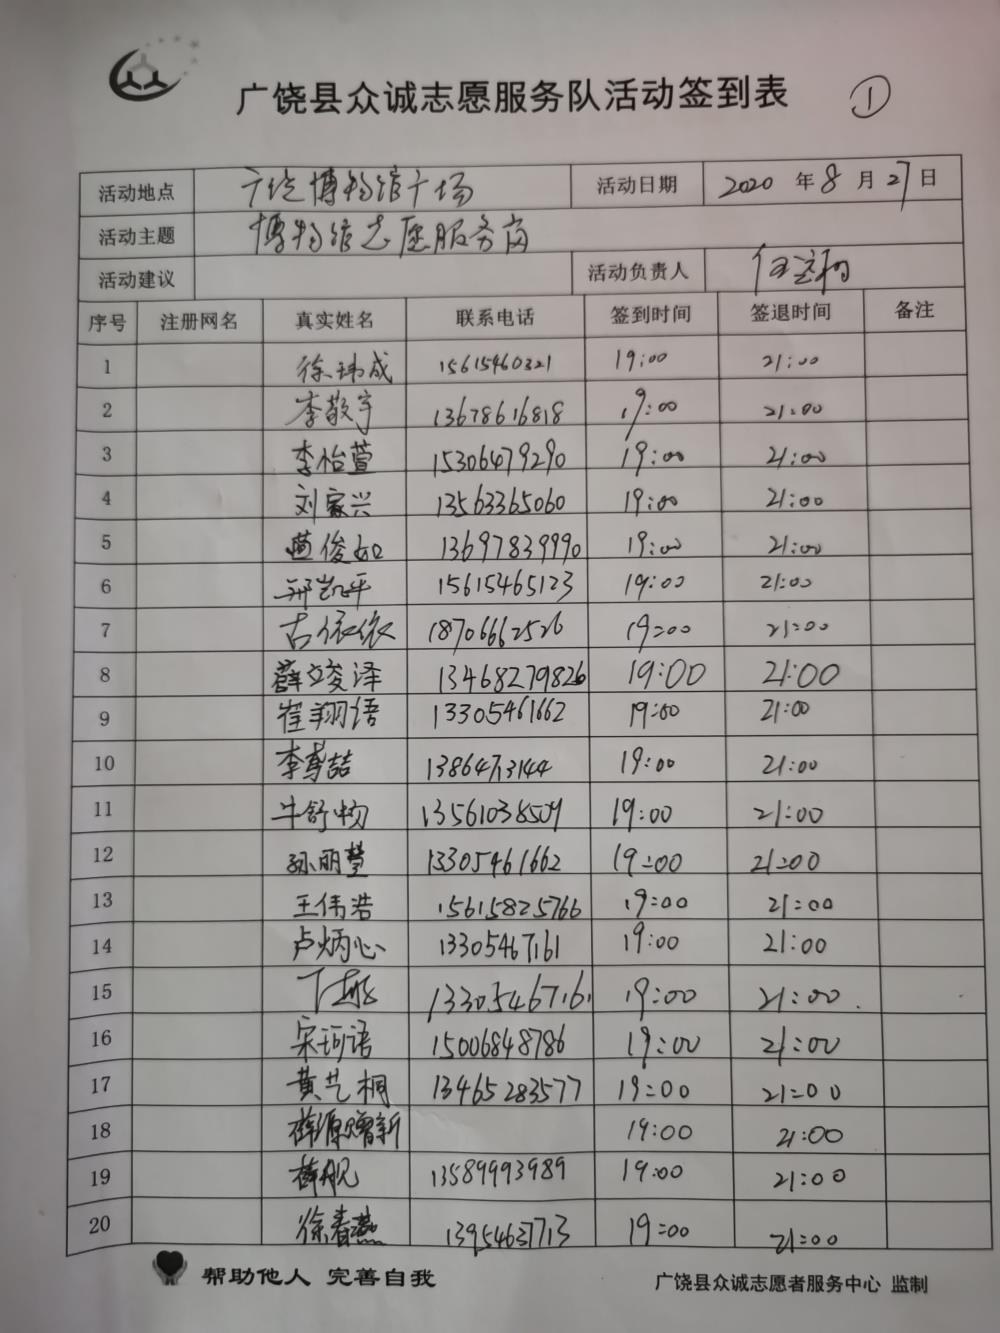 广饶县众诚志愿服务队活动签到表 ①
活动地点 广饶博物馆广场 活动日期 2020 年 8 月 27 日
活动主题 博物馆志愿服务岗
活动建议 活动负责人
序号 注册网名 真实姓名 联系电话 签到时间 签退时间 备注
1 徐玮成 15615460321 19:00 21:00
2 李敬宇 13678616818 19:00 21:00
3 李怡萱 15306479290 19:00 21:00
4 刘家兴 13563365060 19:00 21:00
5 俊如 13697839990 19:00 21:00
6 邢凯平 15615465123 19:00 21:00
7 古依依 18706662526 19:00 21:00
8 薛竣泽 13468279826 19:00 21:00
9 崔翔语 13305461662 19:00 21:00
10 李喆 13864713144 19:00 21:00
11 牛舒畅 13561038509 19:00 21:00
12 孙丽慧 13305461662 19:00 21:00
13 王伟浩 15615825766 19:00 21:00
14 卢炳心 13305467161 19:00 21:00
15 13305467161 19:00 21:00
16 宋珂语 15006848786 19:00 21:00
17 黄艺桐 13465283577 19:00 21:00
18 薛源增新 19:00 21:00
19 薛舰 13589993989 19:00 21:00
20 徐春燕 13954637713 19:00 21:00
帮助他人 完善自我 广饶县众诚志愿者服务中心 监制